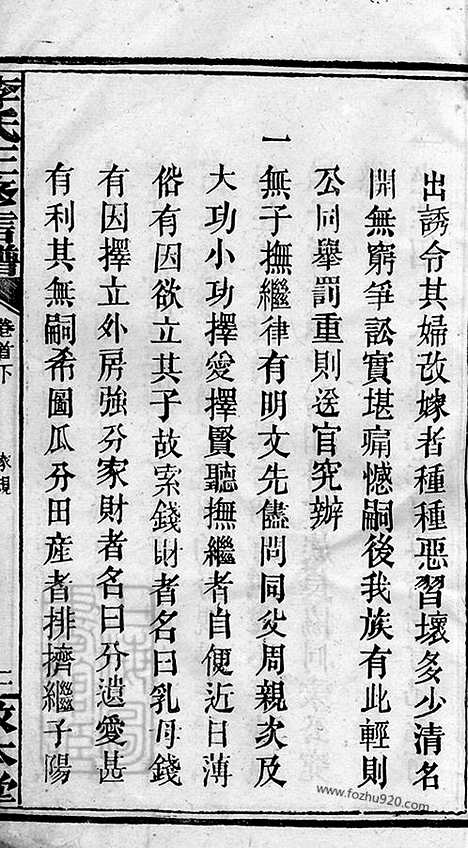 出誘令其婦改嫁者種種惡習壞多少清名
開無窮爭訟實堪痛憾嗣後我族有此輕則
公同舉罰重則送官究辦
一無子撫繼律有明文先儘問同父周親次及
大功小功擇愛擇賢聽撫繼者自便近日薄
俗有因欲立其子故索錢財者名曰乳母錢
有因擇立外房強分家財者名曰分遺愛甚
有利其無嗣希圖瓜分田産者排擠繼子陽
李氏三修言譜
卷首下
家規
敦本堂
www.fozhu920.com